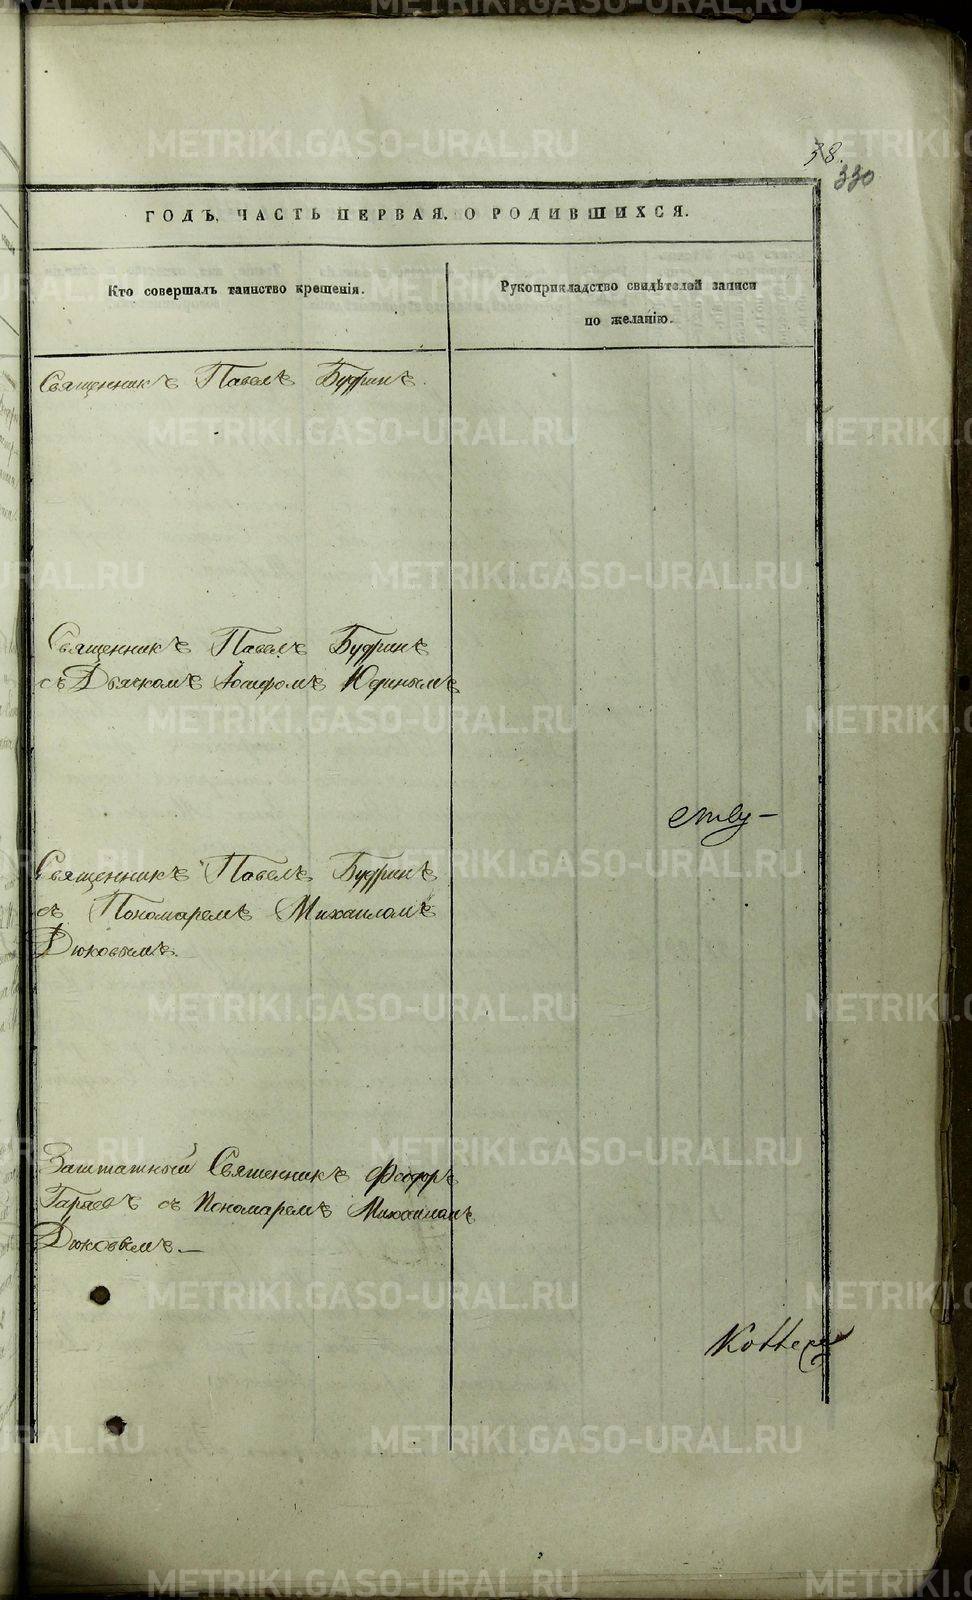 38.
330
ГОДЪ, ЧАСТЬ ПЕРВАЯ, О РОДИВШИХСЯ.
Кто совершалъ таинство крещенія.
Рукоприкладство свидѣтелей записи
по желанію.
Священникъ Павелъ Будринъ.
Священникъ Павелъ Будринъ
съ Дьячкомъ Іосифомъ Юдинымъ
Священникъ Павелъ Будринъ
съ Пономаремъ Михаиломъ
Дюковымъ.
Заштатный Священникъ Феодоръ
Гаряевъ съ Пономаремъ Михаиломъ
Дюковымъ.—
METRIKI.GASO-URAL.RU